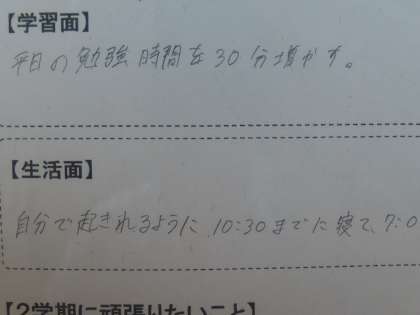 【学習面】
平日の勉強時間を30分増かす。
【生活面】
自分で起きれるように、10:30までに寝て、7:0
【2学期に頑張りたいこと】